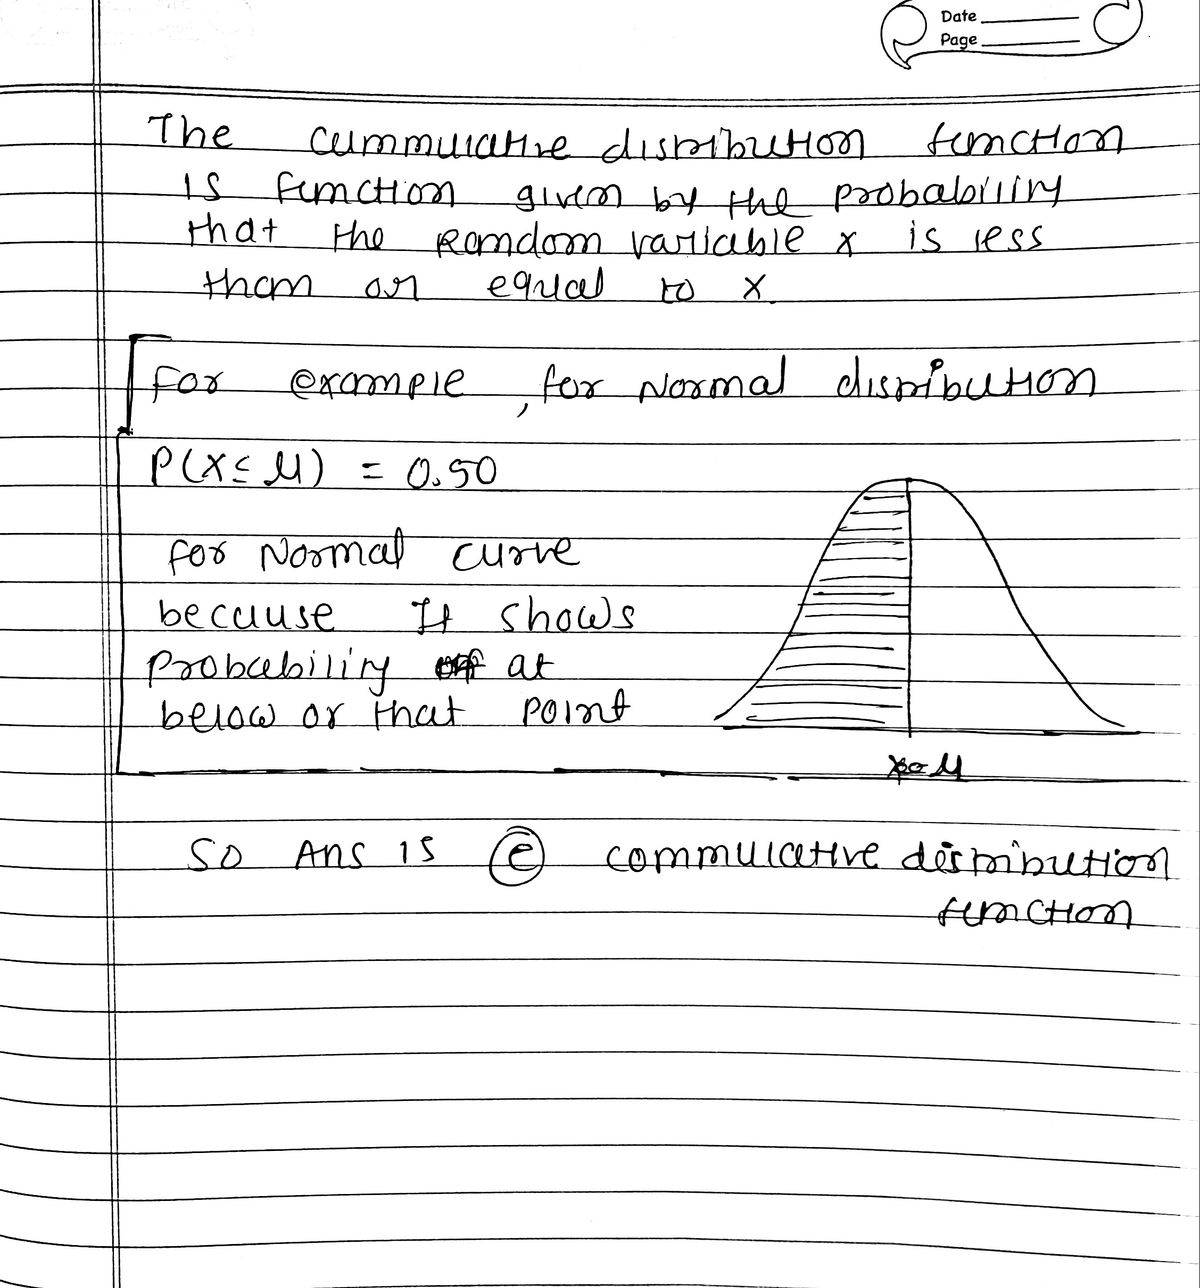 Date
Page
The cummulative distribution function
is function given by the probability
that the Random variable x is less
than or equal to x.
For example, for Normal distribution
P(X≤ μ) = 0.50
for Normal curve
because It shows
probability at
below or that point
x=μ
So Ans is ⓔ commulative distribution
function